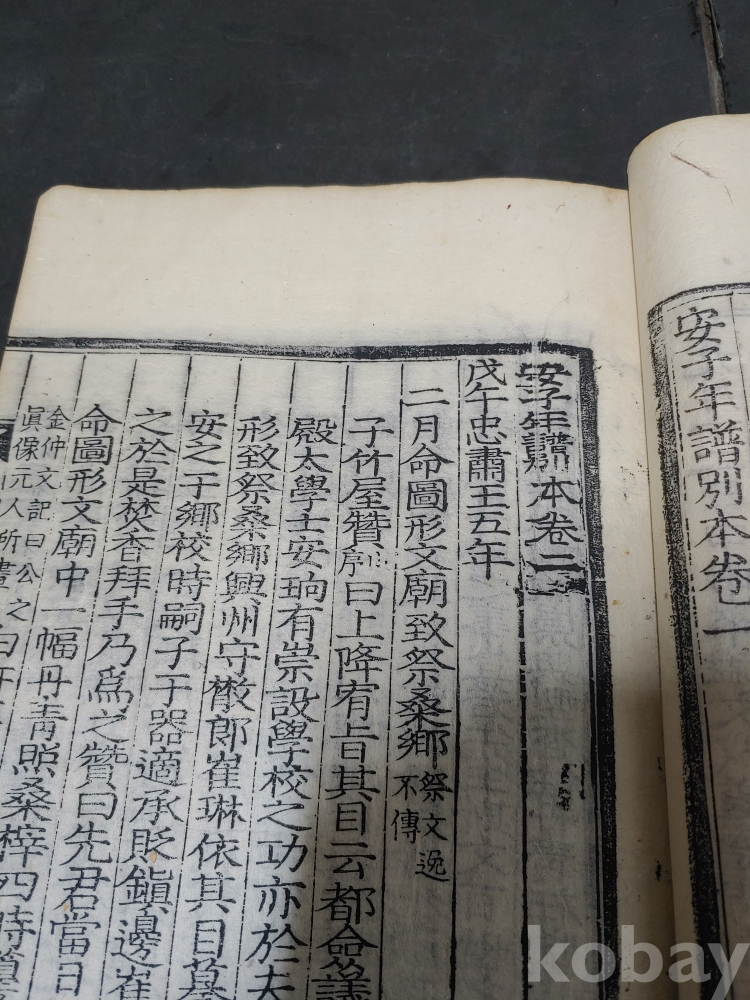 安子年譜別本卷一
安子年譜別本卷二
戊午忠肅王五年
二月命圖形文廟致祭桑鄉祭文逸不傳
子竹屋贊曰上降宥旨其目云都僉議
殿太學士安珦有崇設學校之功亦於夫
形致祭桑鄉興州守散郎崔琳依其目摹
安之于鄉校時嗣子于器適承貶鎭邊崔
之於是焚香拜手乃爲之贊曰先君當日
命圖形文廟中一幅丹靑照桑梓四時
金仲文記曰公之
眞保元人所畫
kobay